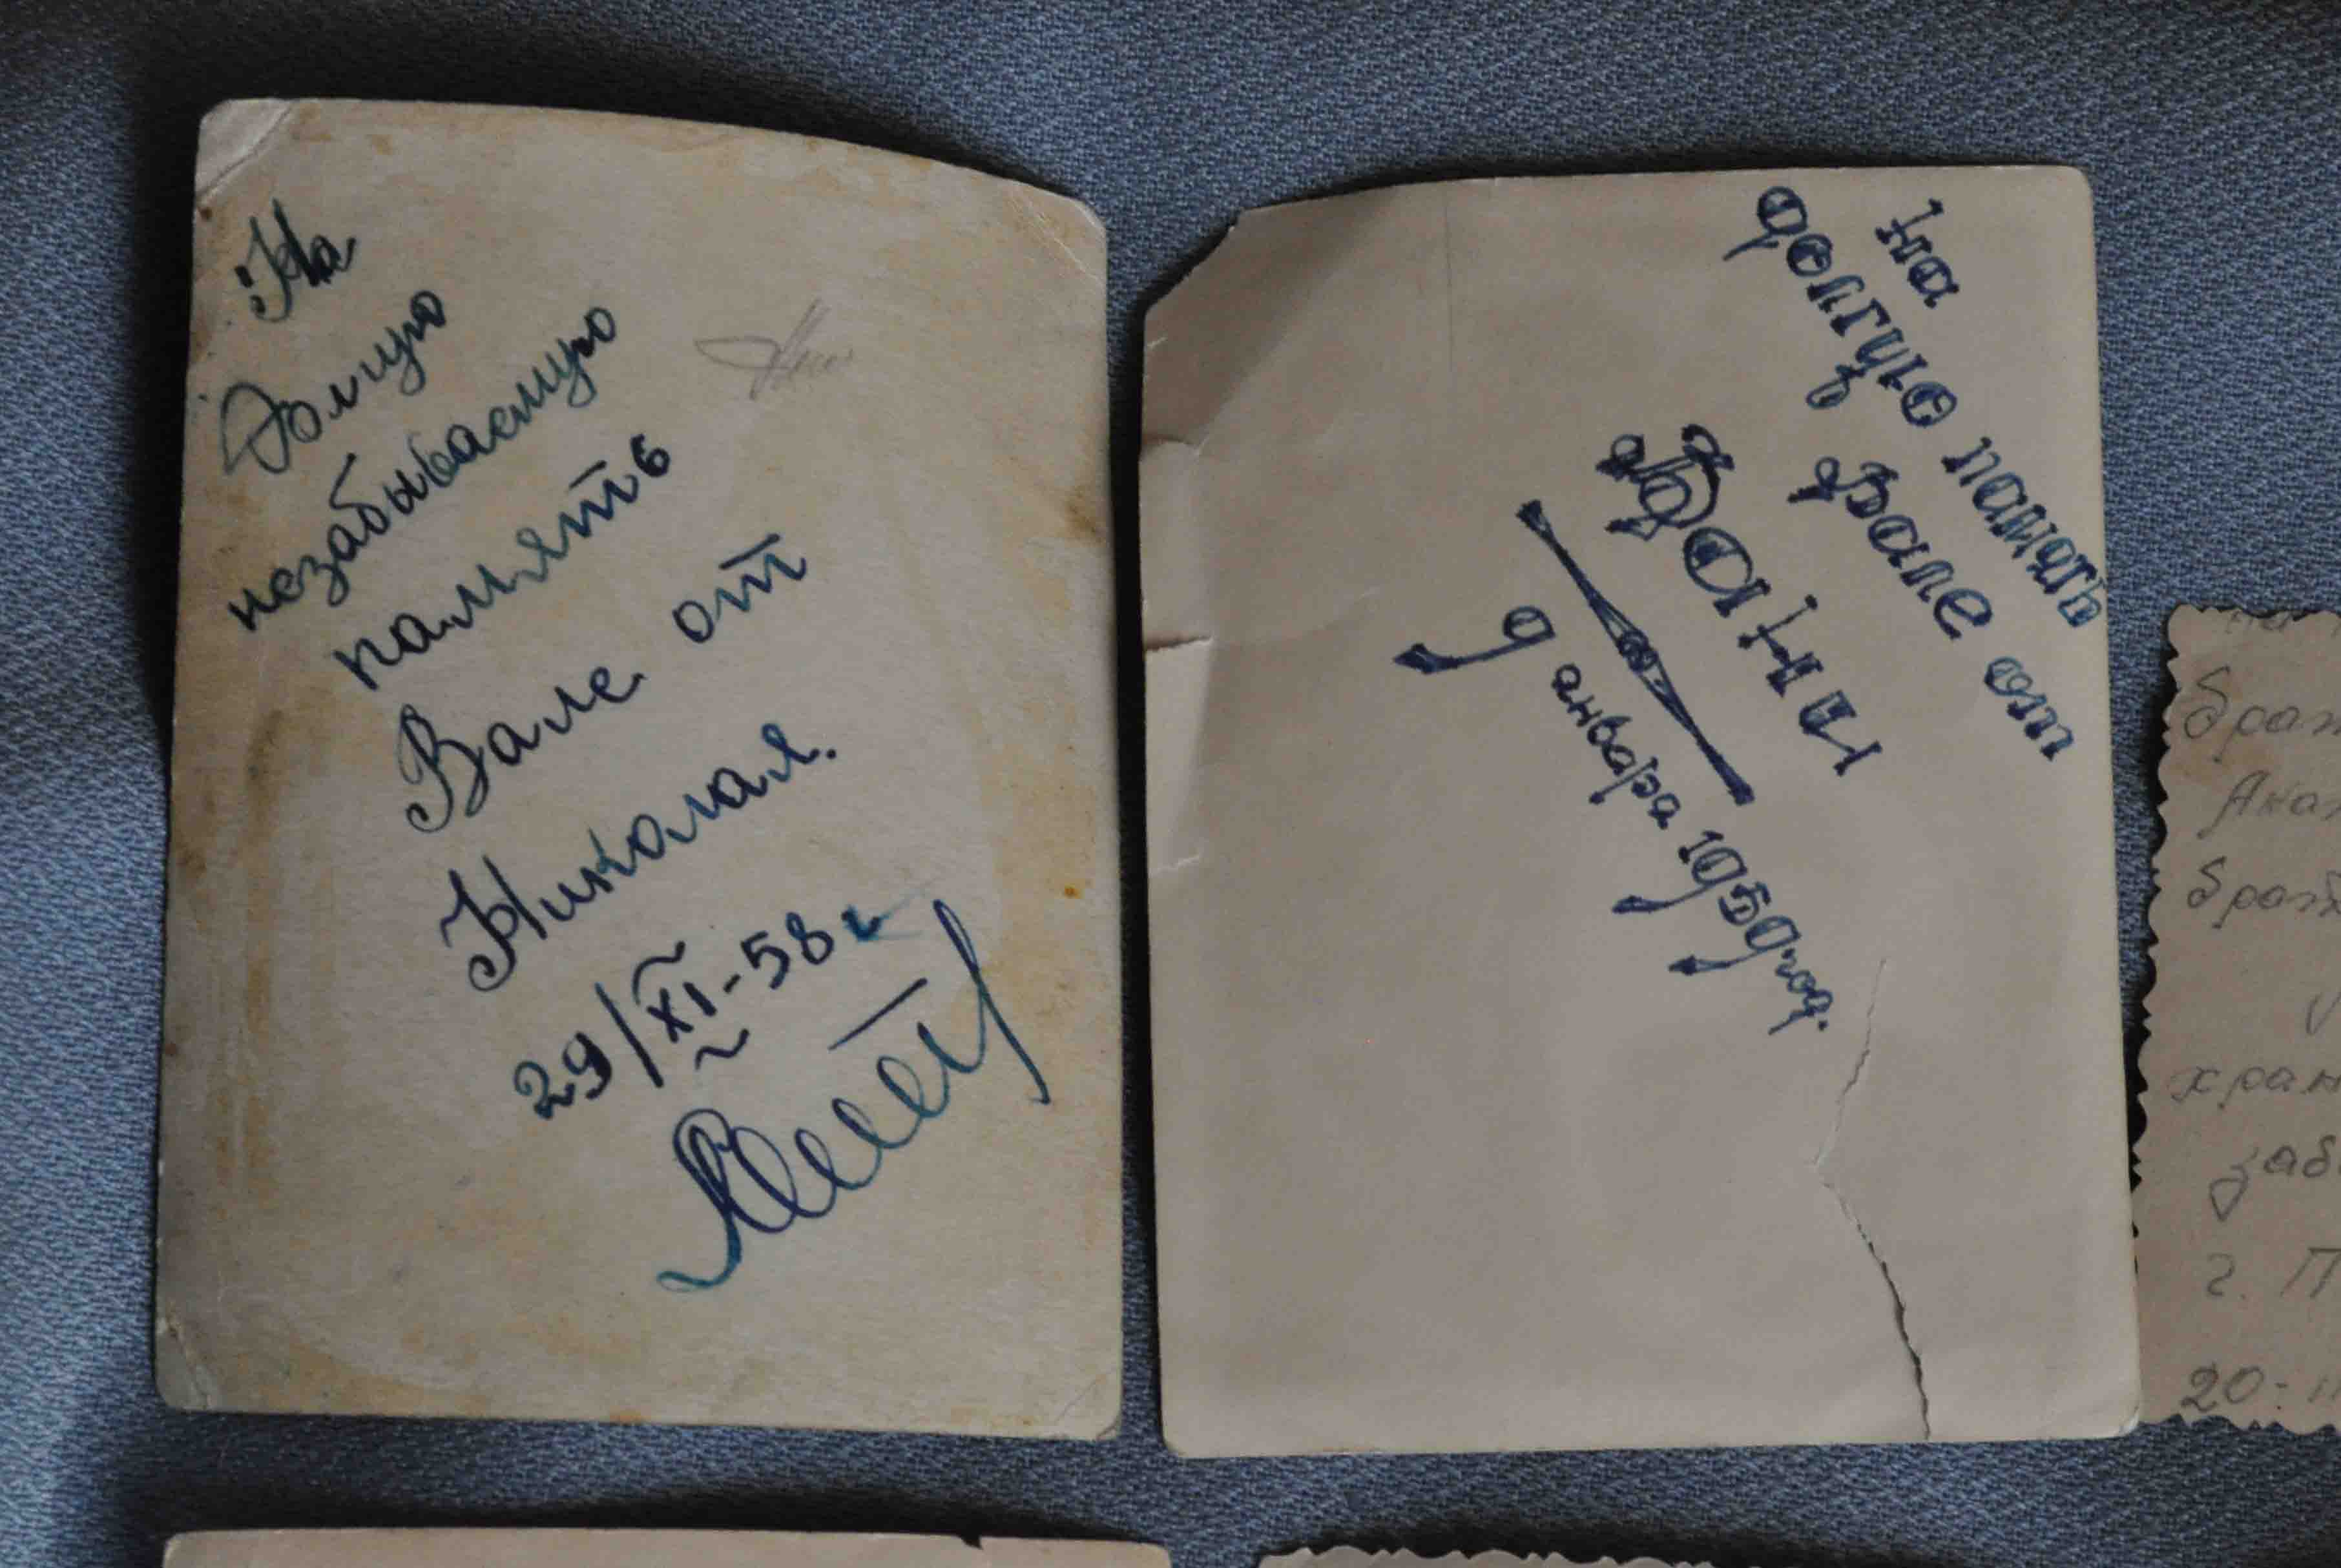 На
Долгую
незабываемую
память
Вале от
Николая.
29/XI-58 г
На
долгую память
Вале от
Вани
9 января 1959 год.
брат
Анат
брат
хран
заб
г. П
20-